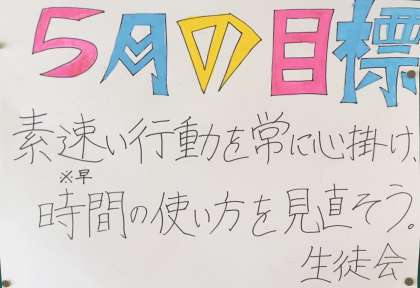 5月の目標
素速い行動を常に心掛け、
※早
時間の使い方を見直そう。
生徒会